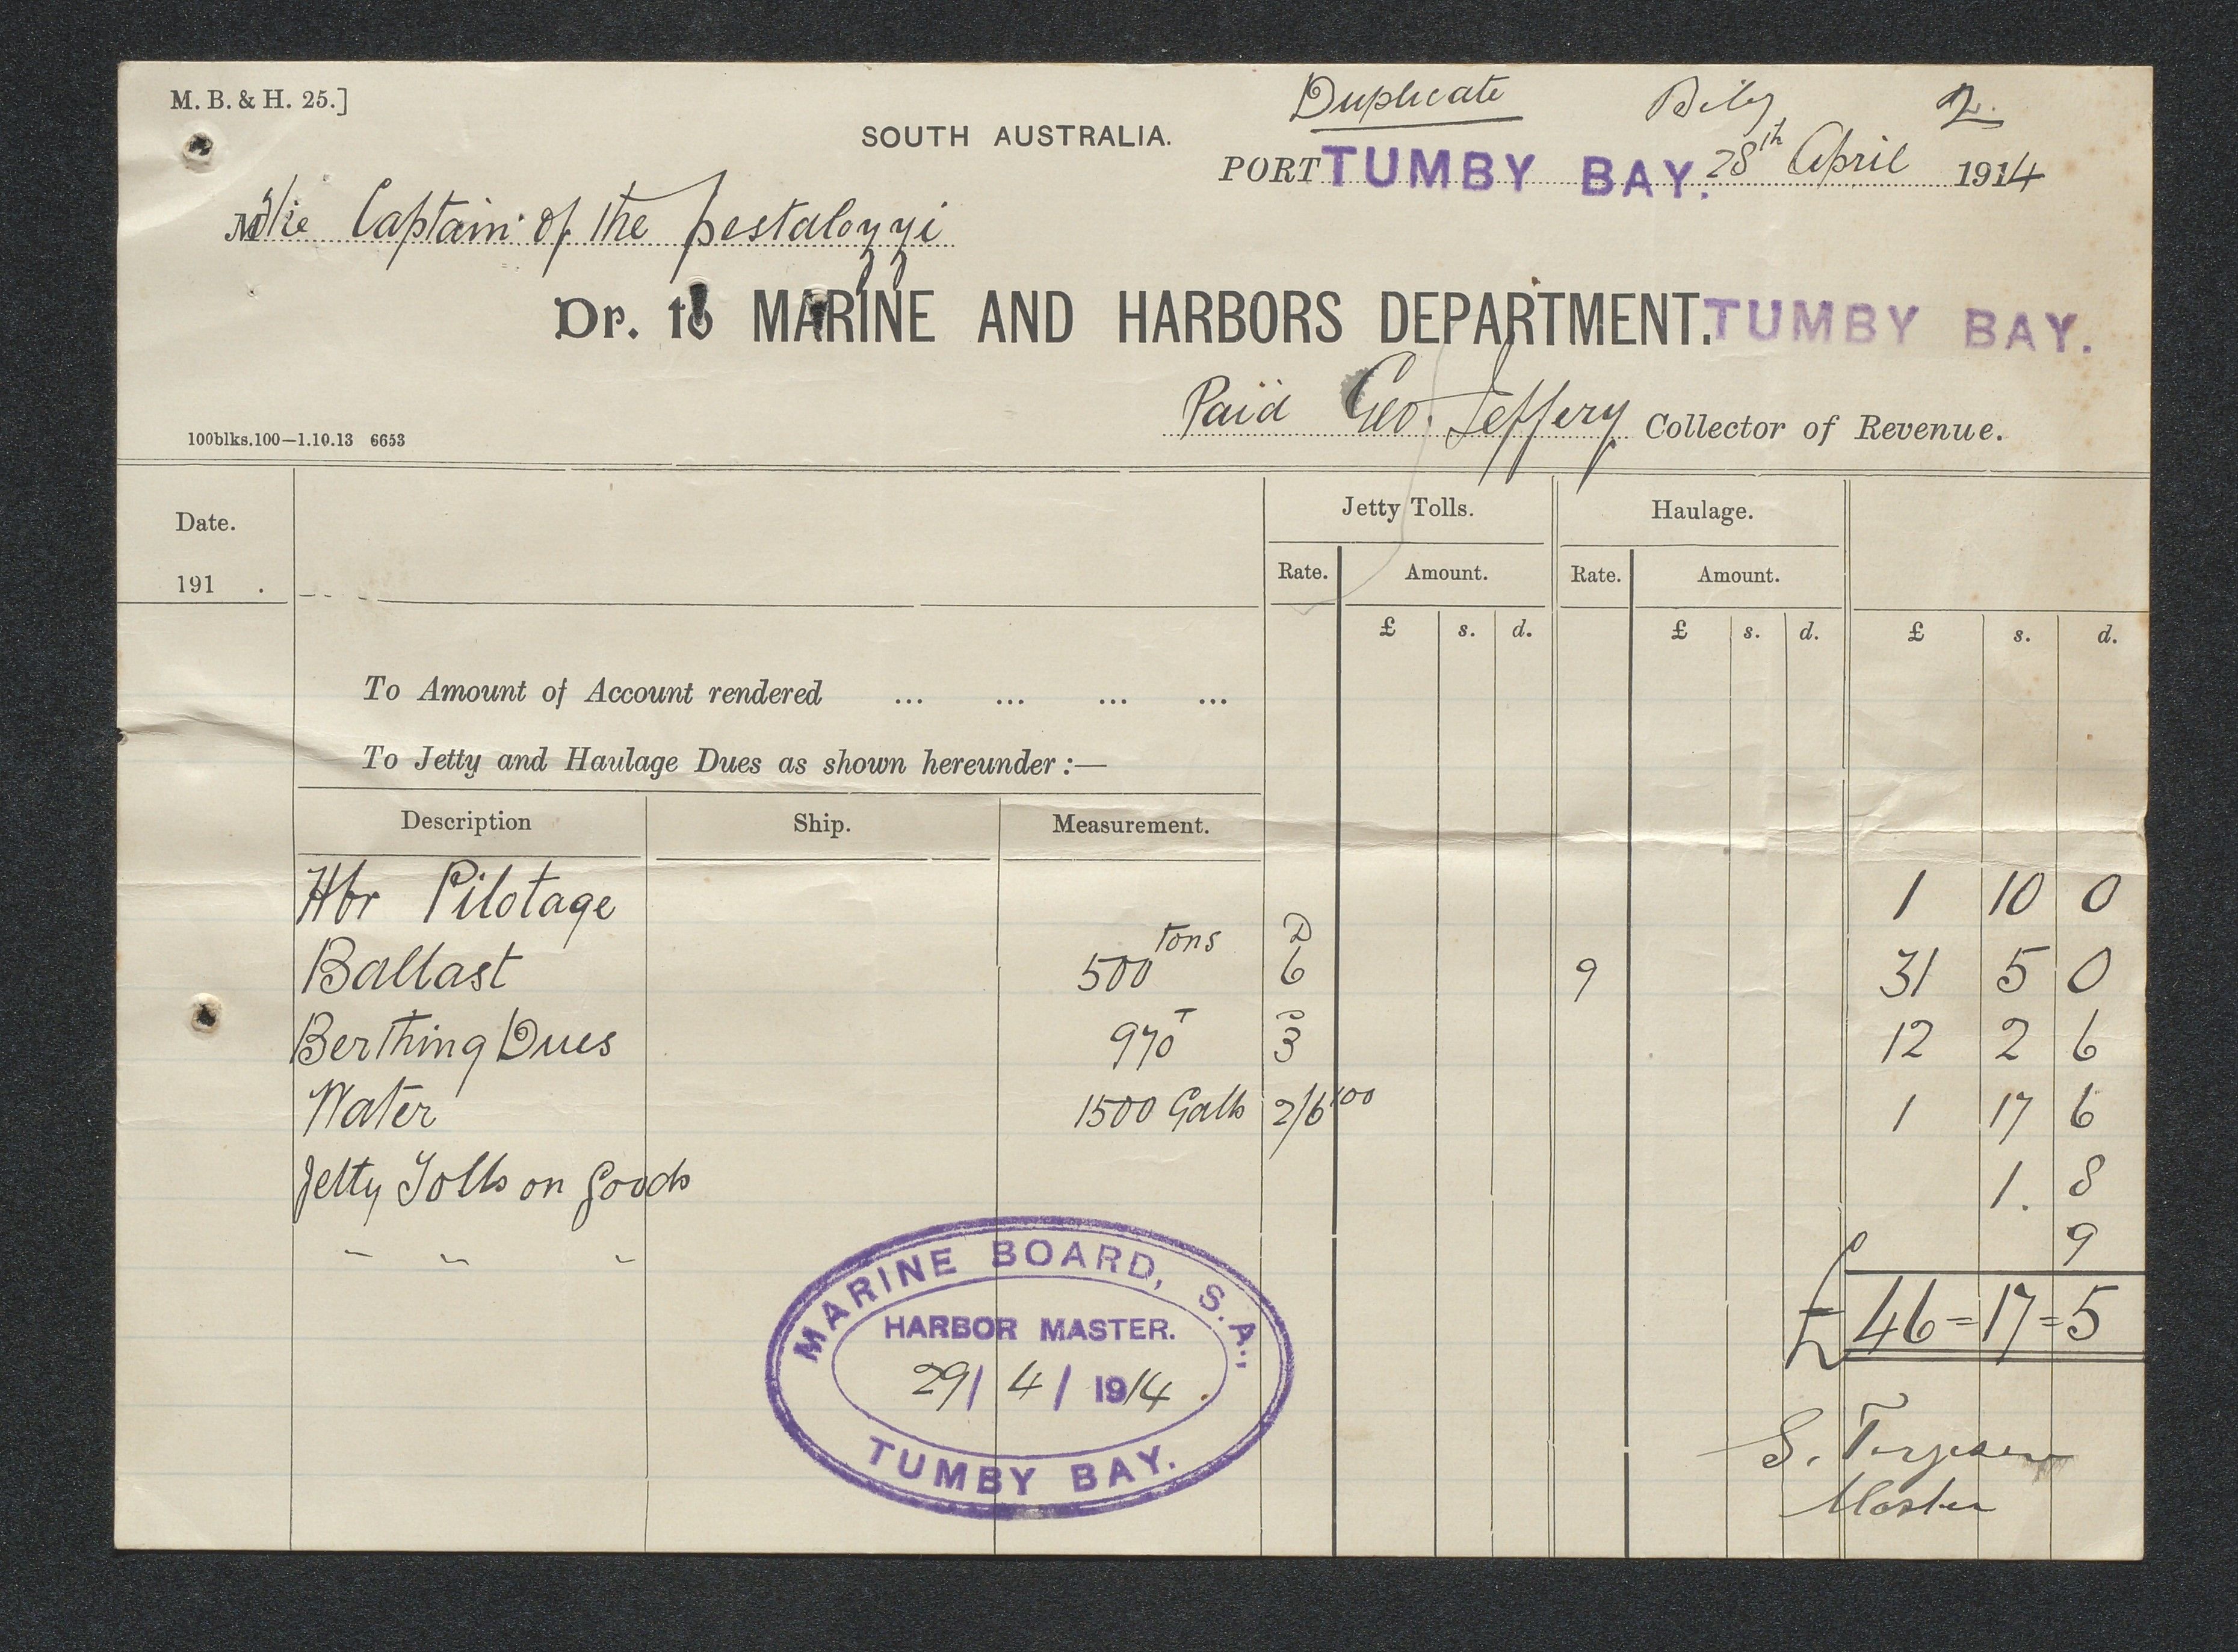 M. B. & H. 25.]
Duplicate
2.
SOUTH AUSTRALIA.
PORT TUMBY BAY. 28th April 1914
M The Captain of the pestalozzi
Dr. to MARINE AND HARBORS DEPARTMENT. TUMBY BAY.
Paid Geo. Jeffery Collector of Revenue.
100blks.100—1.10.13 6653
Date. Jetty Tolls. Haulage.
191 . Rate. Amount. Rate. Amount.
£ s. d. £ s. d. £ s. d.
To Amount of Account rendered ... ... ... ...
To Jetty and Haulage Dues as shown hereunder :—
Description Ship. Measurement.
Hbr Pilotage 1 10 0
Ballast 500 tons D 6 9 31 5 0
Berthing Dues 970 T 3 12 2 6
Water 1500 Galls 2/6 100 1 17 6
Jetty Tolls on Goods 1. 8
" " " 9
£ 46=17=5
MARINE BOARD, S.A.,
HARBOR MASTER.
29/ 4/ 1914
TUMBY BAY.
S.
Master